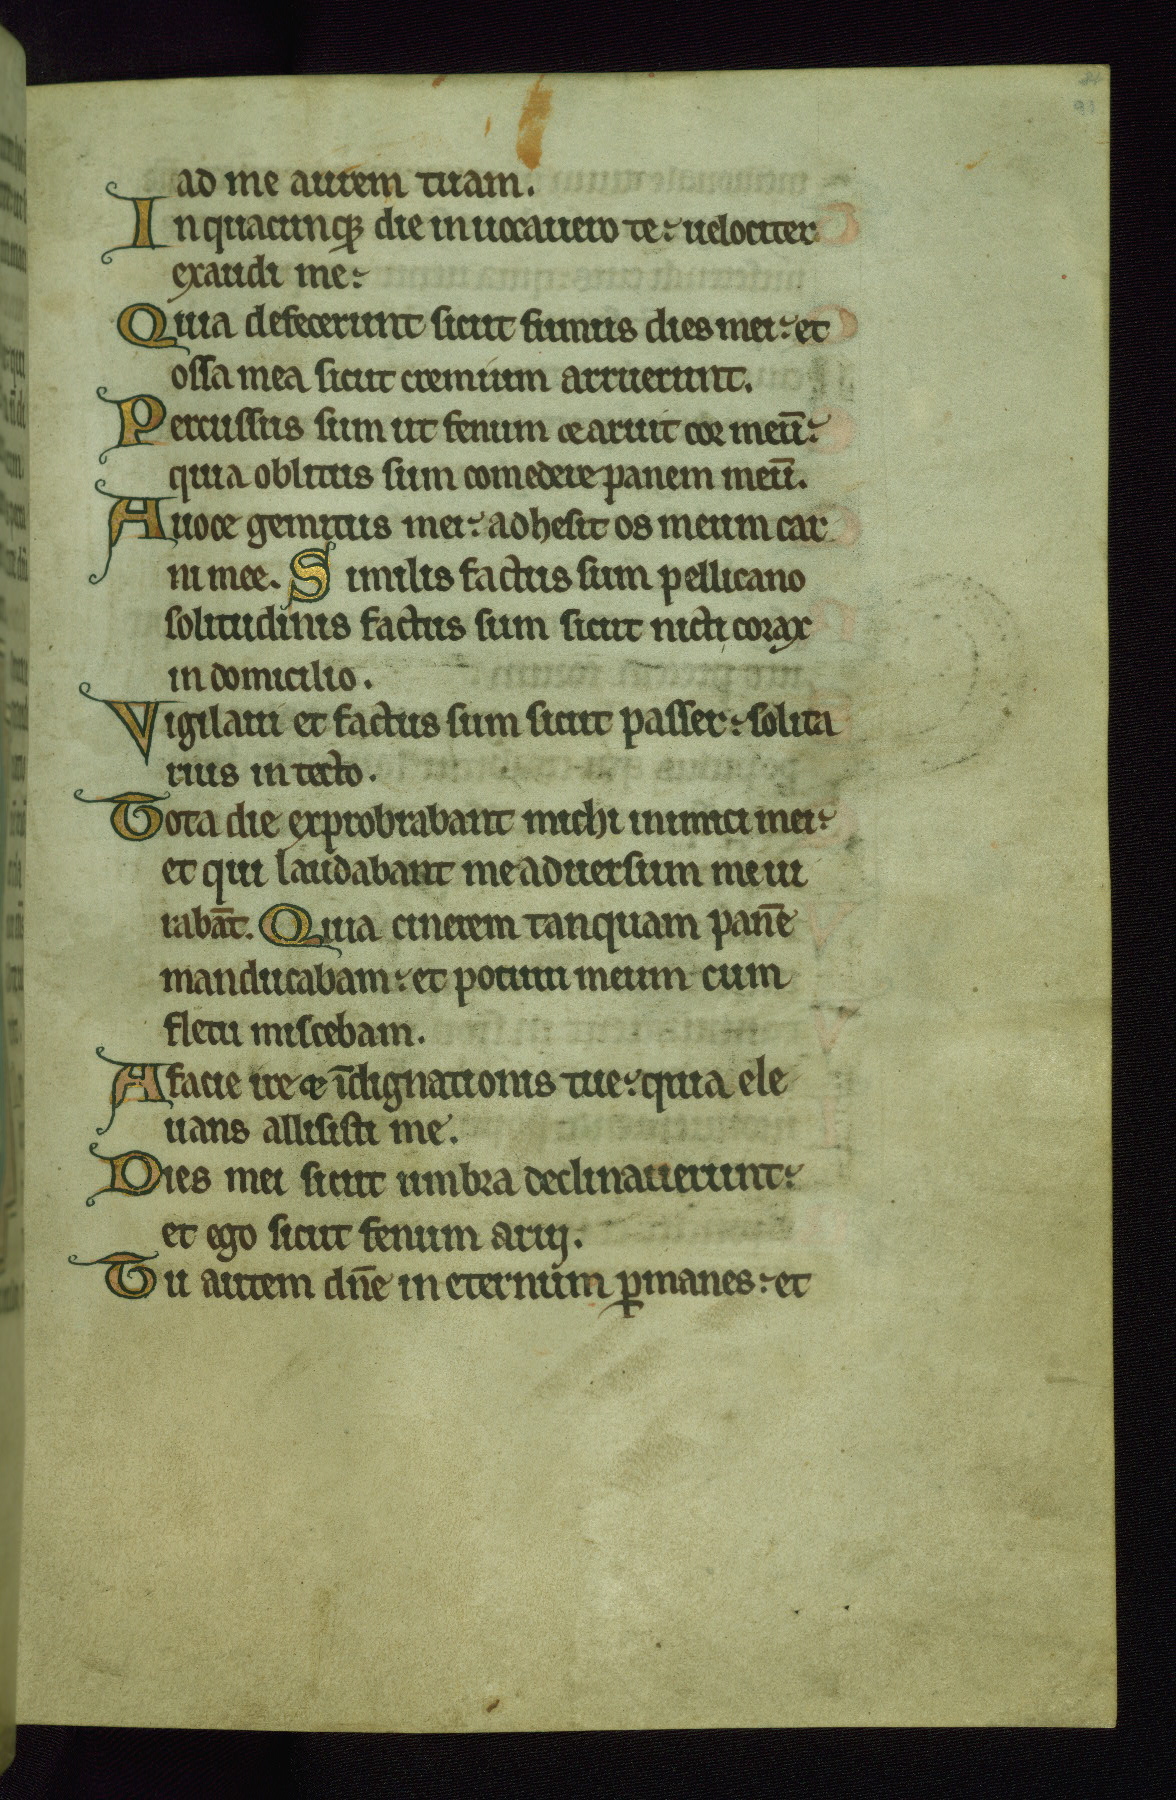 ad me aurem tuam.
In quacunq; die inuocauero te: uelociter
exaudi me:
Quia defecerunt sicut fumus dies mei: et
ossa mea sicut cremium arruerunt.
Percussus sum ut fenum et aruit cor meū:
quia oblitus sum comedere panem meū.
A uoce gemitus mei: adhesit os meum car
ni mee. Similis factus sum pellicano
solitudinis factus sum sicut nicticorax
in domicilio.
Vigilaui et factus sum sicut passer: solita
rius in tecto.
Tota die exprobrabant michi inimici mei:
et qui laudabant me aduersum me iu
rabāt. Quia cinerem tanquam panē
manducabam: et potum meum cum
fletu miscebam.
A facie ire et īdignationis tue: quia ele
uans allisisti me.
Dies mei sicut umbra declinauerunt:
et ego sicut fenum arui.
Tu autem dn̄e in eternum ꝑmanes: et